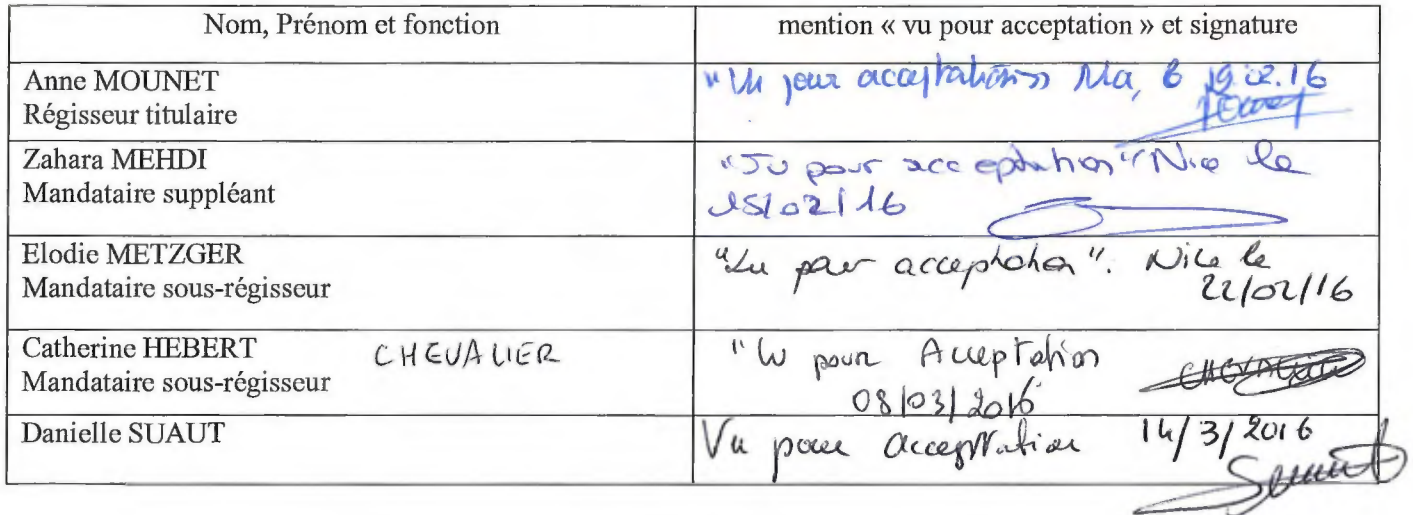 Nom, Prénom et fonction
mention « vu pour acceptation » et signature
Anne MOUNET
Régisseur titulaire
"Vu pour acceptation" 19.02.16
Zahara MEHDI
Mandataire suppléant
"Vu pour acceptation" Nice le
15/02/16
Elodie METZGER
Mandataire sous-régisseur
"Vu pour acceptation". Nice le
22/02/16
Catherine HEBERT CHEVALIER
Mandataire sous-régisseur
"Vu pour Acceptation
08/03/2016
CHEVALIER
Danielle SUAUT
Vu pour acceptation 14/3/2016